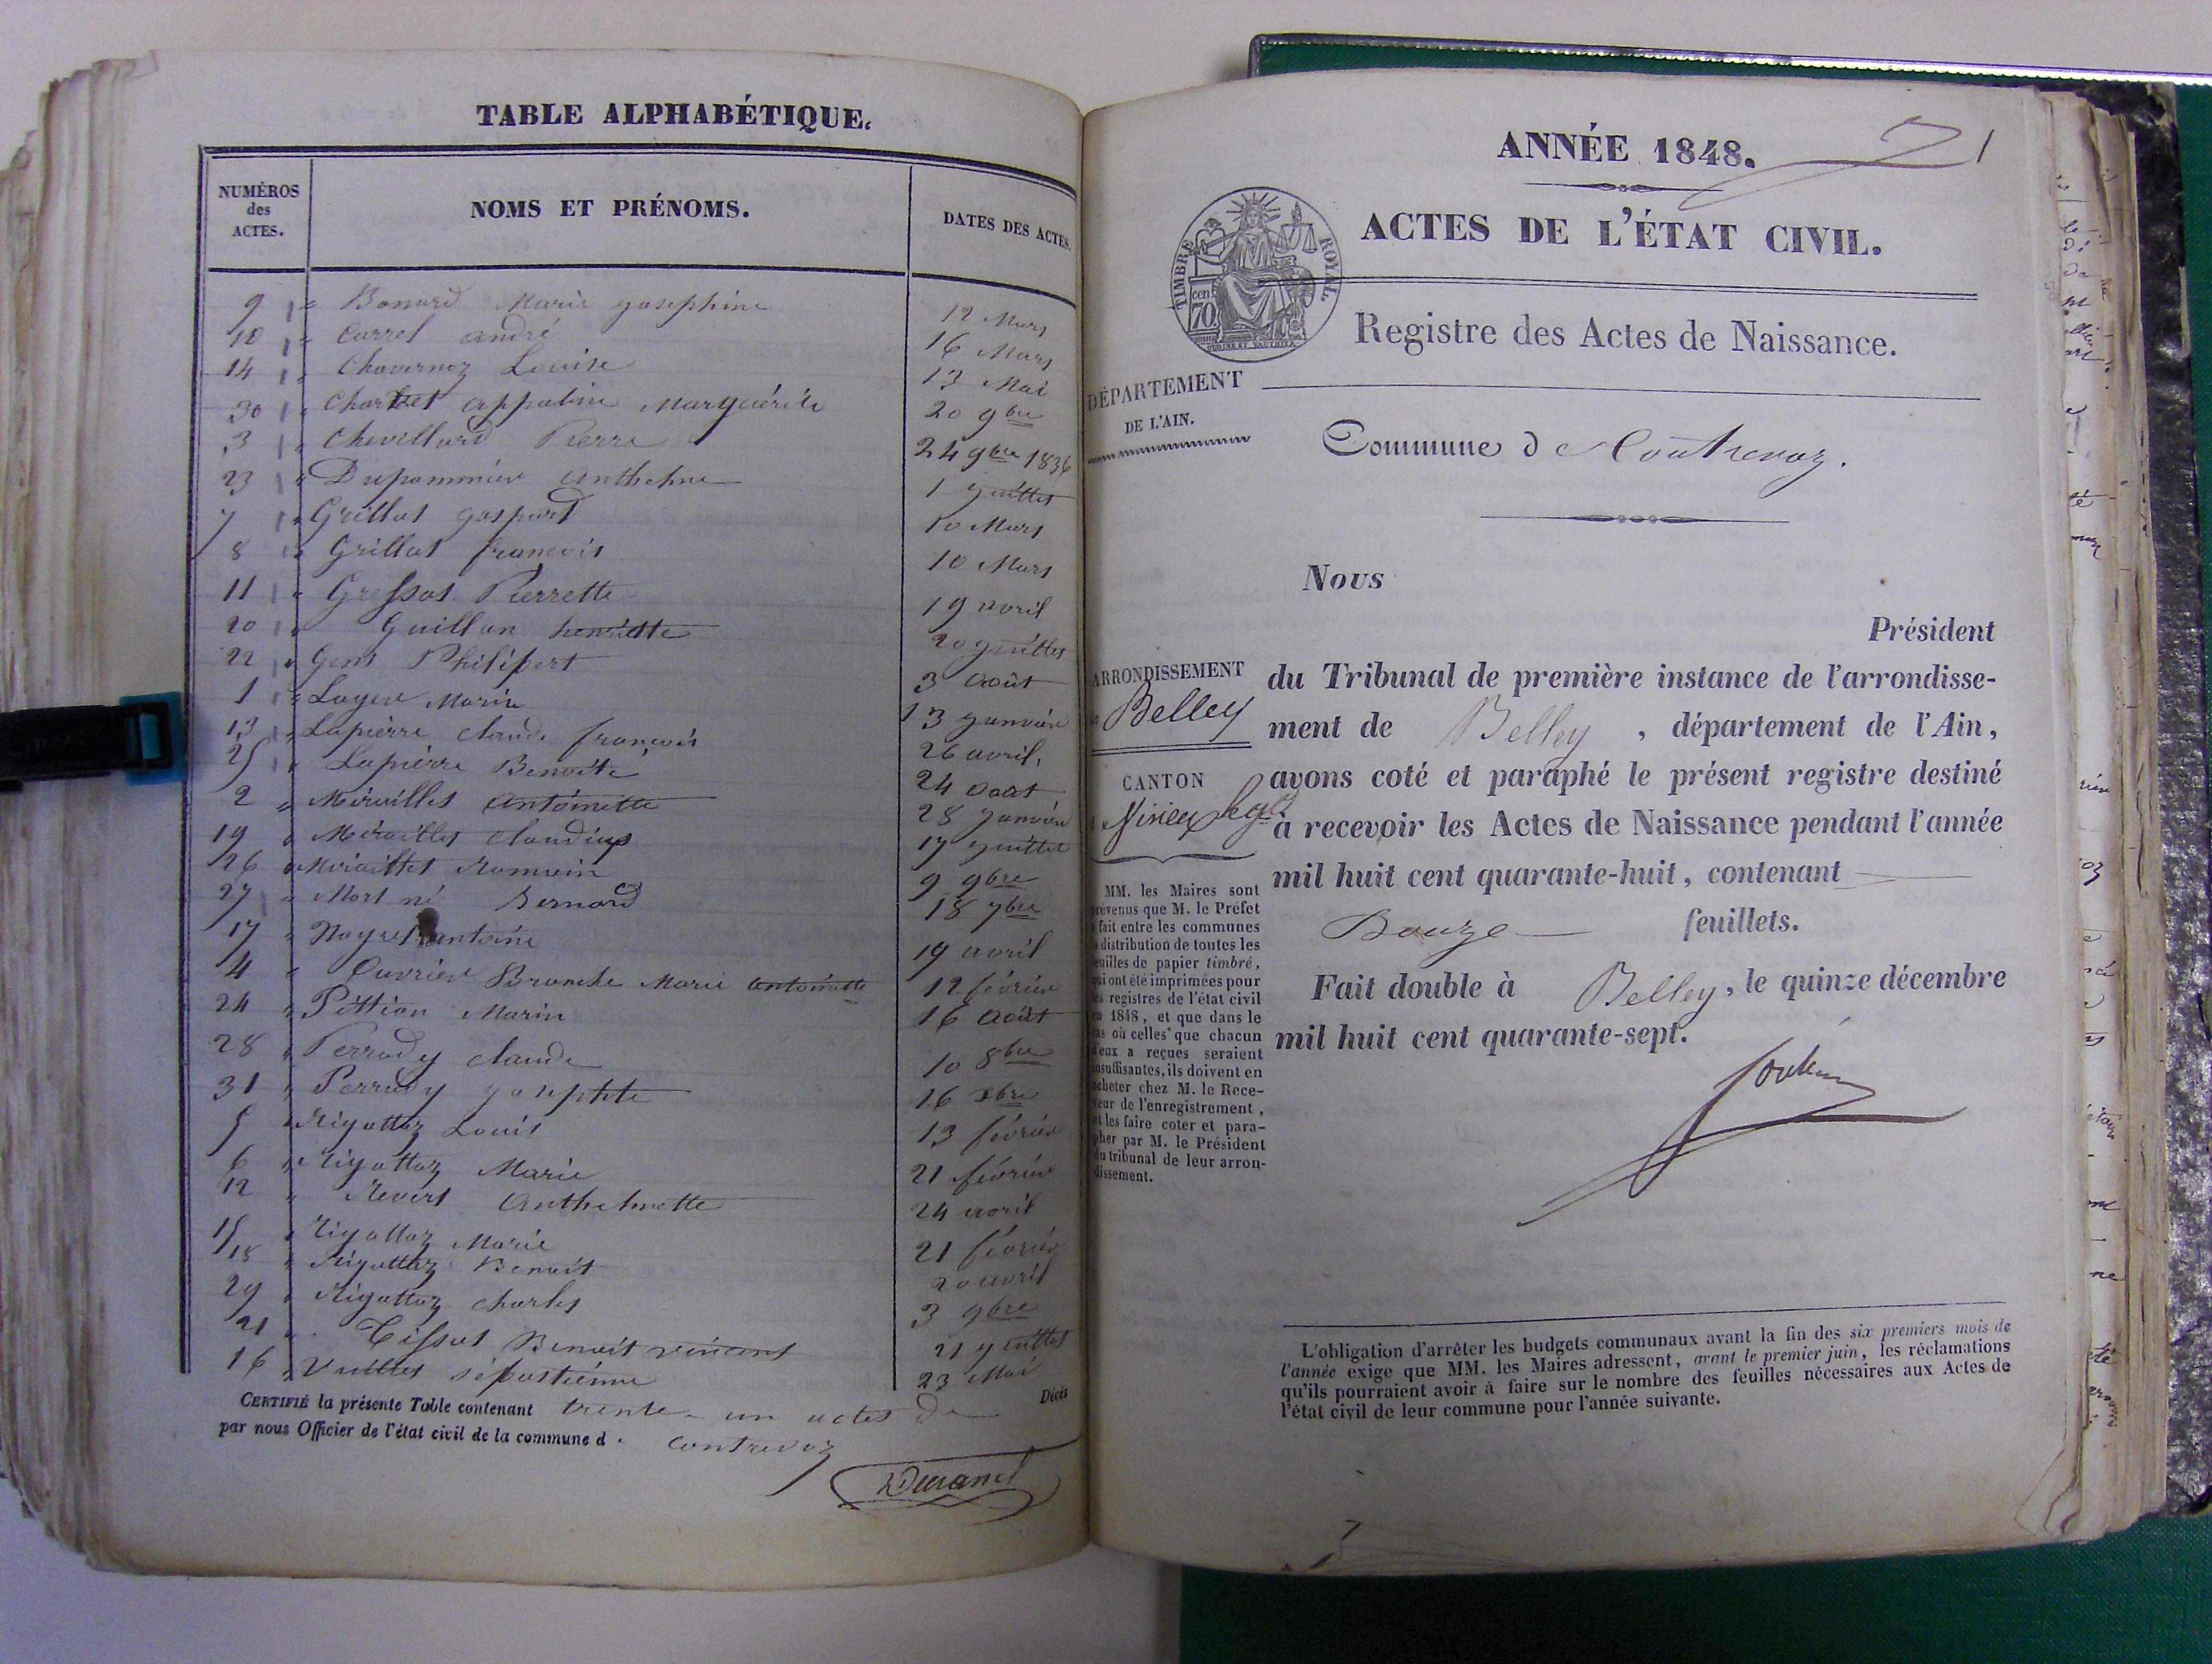 TABLE ALPHABÉTIQUE.
NUMÉROS des ACTES. NOMS ET PRÉNOMS. DATES DES ACTES.
9 " Bonard Marie josephine 12 Mars
10 " Carrel andré 16 Mars
14 " Chavernoz Louise 13 Mai
30 " Charvet appoline Marguérite 20 9bre
3 " Chevillard Pierre 24 9bre 1836
23 " Anthelme 1
7 " Grillat gaspard 10 Mars
8 " Grillat françois 10 Mars
11 " Gressot Pierrette 19 avril
20 " Guillon henriette 20 juillet
22 " Gent Philipert 3 Août
1 " Loyer Marie 13 janvier
13 " Lapierre claude françois 26 avril.
25 " Lapierre Benoîte 24 Août
2 " Miraillet antoinette 28 janvier
19 " Miraillet Claudius 17 juillet
26 " Miraillet Romain 9 9bre
27 " Mort né Bernard 18 7bre
17 " Noyret antoine 19 avril
4 " Ouvrier Branche Marie antoinette 12 février
24 " Pittion Marie 16 Août
28 " Perrody claude 10 8bre
31 " Perrody josephte 16 xbre
5 " Rigottaz Louis 13 février
6 " Rigottaz Marie 21 février
12 " Revert Anthelmette 24 avril
15 " Rigottaz Marie 21 février
18 " Rigottaz Benoit 20 avril
29 " Rigottaz charles 3 9bre
21 " Tissot Benoit vincent 21 juillet
16 " Vuillet sébastienne 23 Mai
CERTIFIÉ la présente Table contenant trente-un actes de Décès
par nous Officier de l'état civil de la commune d contrevoz
Durand
1
ANNÉE 1848.
ACTES DE L'ÉTAT CIVIL.
TIMBRE ROYAL.
cent 70
OUDINE ET VAUTHIER
Registre des Actes de Naissance.
DÉPARTEMENT
DE L'AIN.
Commune de Contrevoz.
Nous
Président
ARRONDISSEMENT
Belley
du Tribunal de première instance de l'arrondisse-
ment de Belley , département de l'Ain,
CANTON
Virieu
avons coté et paraphé le présent registre destiné
à recevoir les Actes de Naissance pendant l'année
mil huit cent quarante-huit, contenant
Douze feuillets.
Fait double à Belley, le quinze décembre
mil huit cent quarante-sept.
MM. les Maires sont
prévenus que M. le Préfet
a fait entre les communes
la distribution de toutes les
feuilles de papier timbré,
qui ont été imprimées pour
les registres de l'état civil
en 1848, et que dans le
cas où celles que chacun
d'eux a reçues seraient
insuffisantes, ils doivent en
acheter chez M. le Rece-
veur de l'enregistrement,
et les faire coter et para-
pher par M. le Président
du tribunal de leur arron-
dissement.
L'obligation d'arrêter les budgets communaux avant la fin des six premiers mois de
l'année exige que MM. les Maires adressent, avant le premier juin, les réclamations
qu'ils pourraient avoir à faire sur le nombre des feuilles nécessaires aux Actes de
l'état civil de leur commune pour l'année suivante.